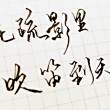 花疏影里
吹笛到天